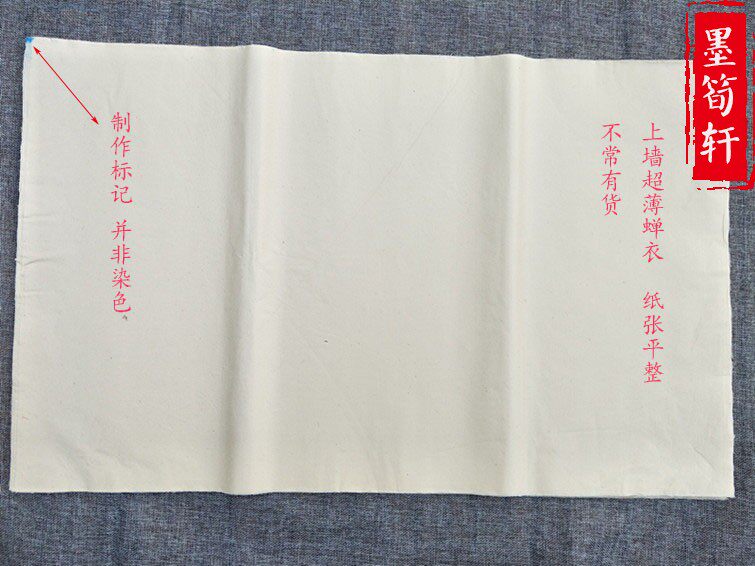 墨筍轩
上墙超薄蝉衣 纸张平整
不常有货
制作标记 并非染色。